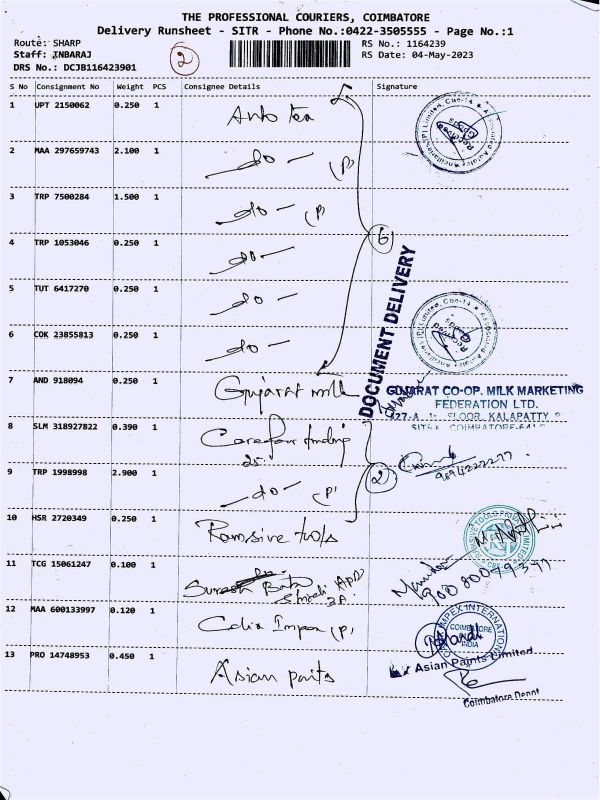 THE PROFESSIONAL COURIERS, COIMBATORE
Delivery Runsheet - SITR - Phone No.:0422-3505555 - Page No.:1
Route: SHARP
Staff: INBARAJ
DRS No.: DCJB116423901
2
RS No.: 1164239
RS Date: 04-May-2023
S No Consignment No Weight PCS Consignee Details Signature
1 UPT 2150062 0.250 1
2 MAA 297659743 2.100 1 do - (P)
3 TRP 7500284 1.500 1 do - (P)
6
4 TRP 1053046 0.250 1 do -
5 TUT 6417270 0.250 1 do -
6 COK 23855813 0.250 1 do -
DOCUMENT DELIVERY
7 AND 918094 0.250 1 Gujarat milk
GUJARAT CO-OP. MILK MARKETING
FEDERATION LTD.
FLOOR, KALAPATTY
8 SLM 318927822 0.390 1
9 TRP 1998998 2.900 1 do - (P)
2
10 HSR 2720349 0.250 1 tools
11 TCG 15061247 0.100 1 Suresh
12 MAA 600133997 0.120 1 (P)
COIMBATORE
INDIA
13 PRO 14748953 0.450 1 Asian paints
Asian Paints Limited
Coimbatore Depot